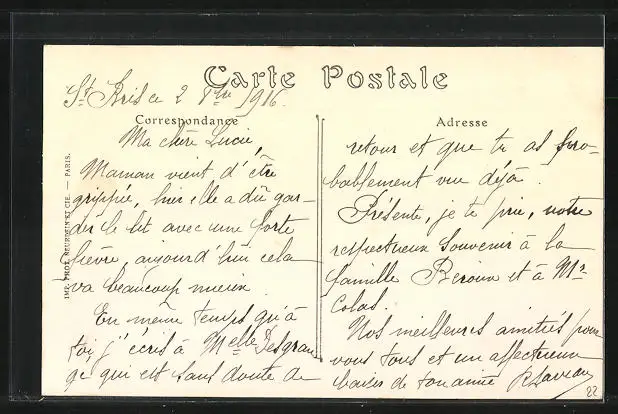 Carte Postale
St Bris le 2 9bre 1916.
Correspondance
Ma chère Lucie,
Maman vient d'être
grippée, hier elle a dû gar-
der le lit avec une forte
fièvre, aujourd'hui cela
va beaucoup mieux.
En même temps qu'à
toi, j'écris à Melle Desgran
ge qui est sans doute de
Adresse
retour et que tu as pro-
bablement vu déjà.
Présente, je te prie, notre
respectueux souvenir à la
famille et à Mr
Colas.
Nos meilleures amitiés pour
vous tous et un affectueux
baiser de ton amie
22
IMP. PHOT. NEURDEIN ET CIE. — PARIS.